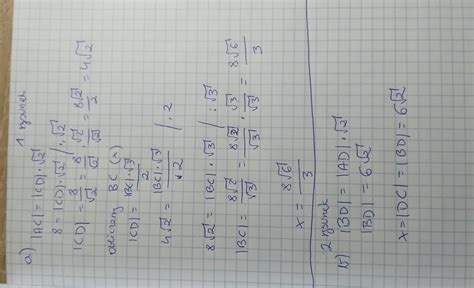 a) 1 rysunek
|AC| = |CD| · √2
8 = |CD| · √2 / : √2
|CD| = 8/√2 = 8/√2 · √2/√2 = 8√2/2 = 4√2
obliczamy BC (x)
|CD| = |BC| · √3/2
4√2 = |BC| · √3/2 / · 2
8√2 = |BC| · √3 / : √3
|BC| = 8√2/√3 = 8√2/√3 · √3/√3 = 8√6/3
x = 8√6/3
2 rysunek
b) |BD| = |AD| · √2
|BD| = 6√2
x = |DC| = |BD| = 6√2